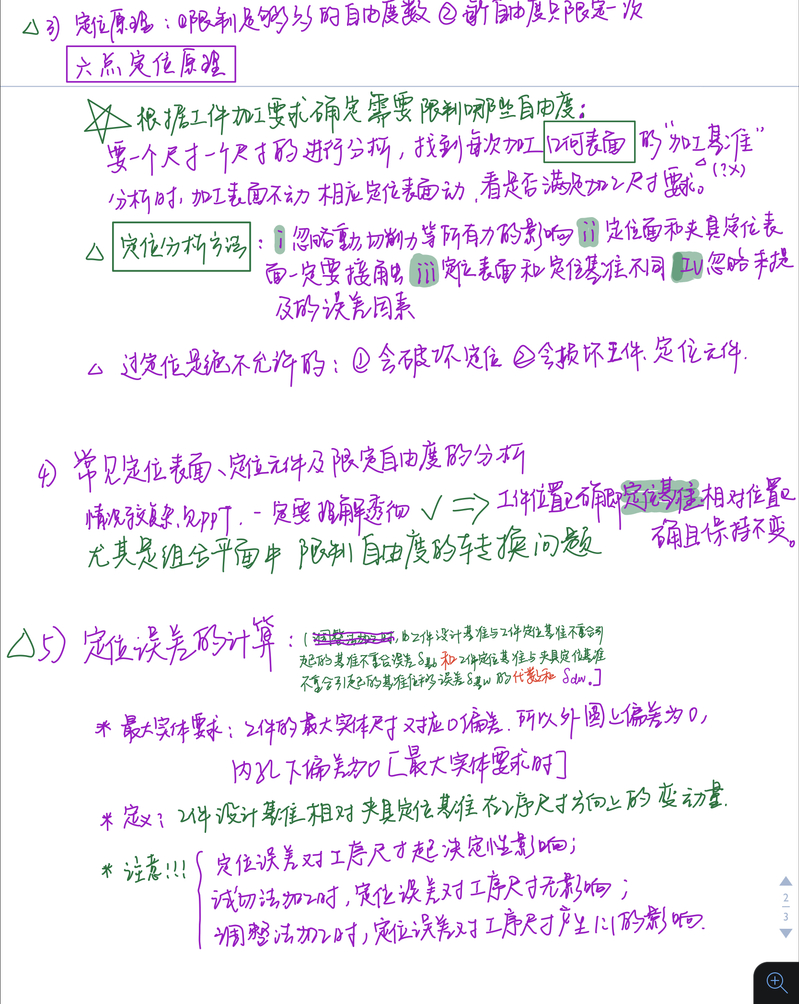 △ 3) 定位原理：①限制足够多的自由度数 ② 每个自由度只限定一次
六点定位原理
☆ 根据工件加工要求确定需要限制哪些自由度：
要一个尺寸一个尺寸的进行分析，找到每次加工几何表面的“加工基准”
分析时，加工表面不动 相应定位表面动，看是否满足加工尺寸要求。(?×)
△ 定位分析方法：i 忽略重力、切削力等所有力的影响 ii 定位面和夹具定位表
面一定要接触 iii 定位表面和定位基准不同 IV 忽略未提
及的误差因素
△ 过定位是绝不允许的：① 会破坏定位 ② 会损坏工件、定位元件.
4) 常见定位表面、定位元件及限定自由度的分析
情况较复杂,见PPT. 一定要理解透彻 √ ⇒ 工件位置正确即定位基准相对位置正
确且保持不变。
尤其是组合平面中 限制自由度的转换问题
△ 5) 定位误差的计算：(由工件设计基准与工件定位基准不重合引
起的基准不重合误差 和工件定位基准与夹具定位基准
不重合引起的基准位移误差 的代数和 δdw。]
* 最大实体要求：工件的最大实体尺寸对应0偏差. 所以外圆上偏差为0，
内孔下偏差为0 [最大实体要求时]
* 定义：工件设计基准相对夹具定位基准在工序尺寸方向上的变动量.
* 注意!!! { 定位误差对工序尺寸起决定性影响；
试切法加工时，定位误差对工序尺寸无影响；
调整法加工时，定位误差对工序尺寸产生1:1的影响.
2
3